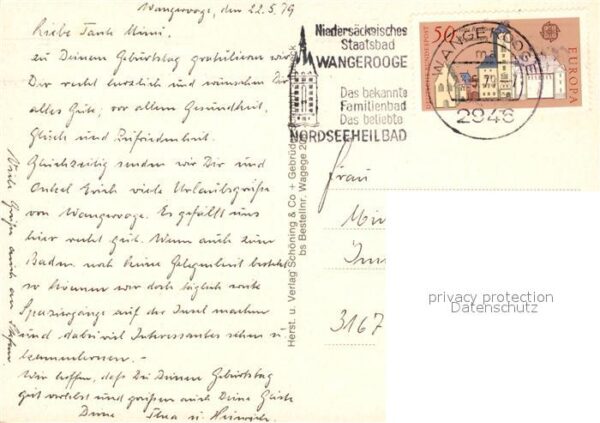 Wangerooge, den 22.5.79
Liebe Tante Mimi,
zu Deinem Geburtstag gratulieren wir
Dir recht herzlich und wünschen Dir
alles Gute, vor allem Gesundheit,
Glück und Zufriedenheit.
Gleichzeitig senden wir Dir und
Onkel Erich viele Urlaubsgrüße
von Wangerooge. Es gefällt uns
hier recht gut. Wenn auch zum
Baden noch keine Gelegenheit besteht
so können wir doch täglich
Spaziergänge auf der Insel machen
und dabei viel Interessantes sehen u.
kennenlernen. -
Wir hoffen, daß Du Deinen Geburtstag
gut verlebst und grüßen auch Deine Gäste
Deine Thea u. Heinrich
Viele Grüße auch an
Niedersächsisches
Staatsbad
WANGEROOGE
Das bekannte
Familienbad
Das beliebte
NORDSEEHEILBAD
WANGEROOGE
2946
50
EUROPA
Herst. u. Verlag Schöning & Co + Gebrüder
bs Bestellnr. Wagege
Frau
3167
privacy protection
Datenschutz